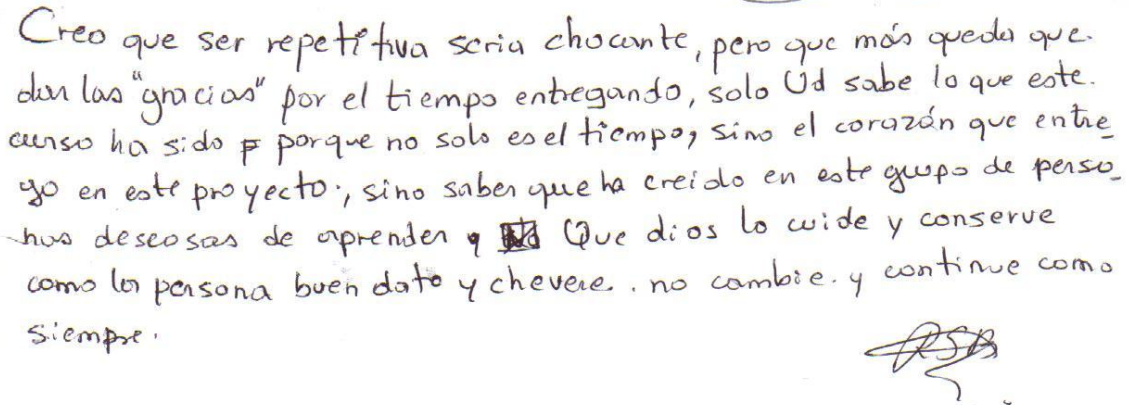 Creo que ser repetitiva seria chocante, pero que más queda que.
dar las "gracias" por el tiempo entregando, solo Ud sabe lo que este.
curso ha sido porque no solo es el tiempo, sino el corazón que entre_
go en este proyecto., sino saber que ha creido en este grupo de perso_
nas deseosas de aprender y Que dios lo cuide y conserve
como la persona buen dato y chevere. no cambie. y continue como
siempre.